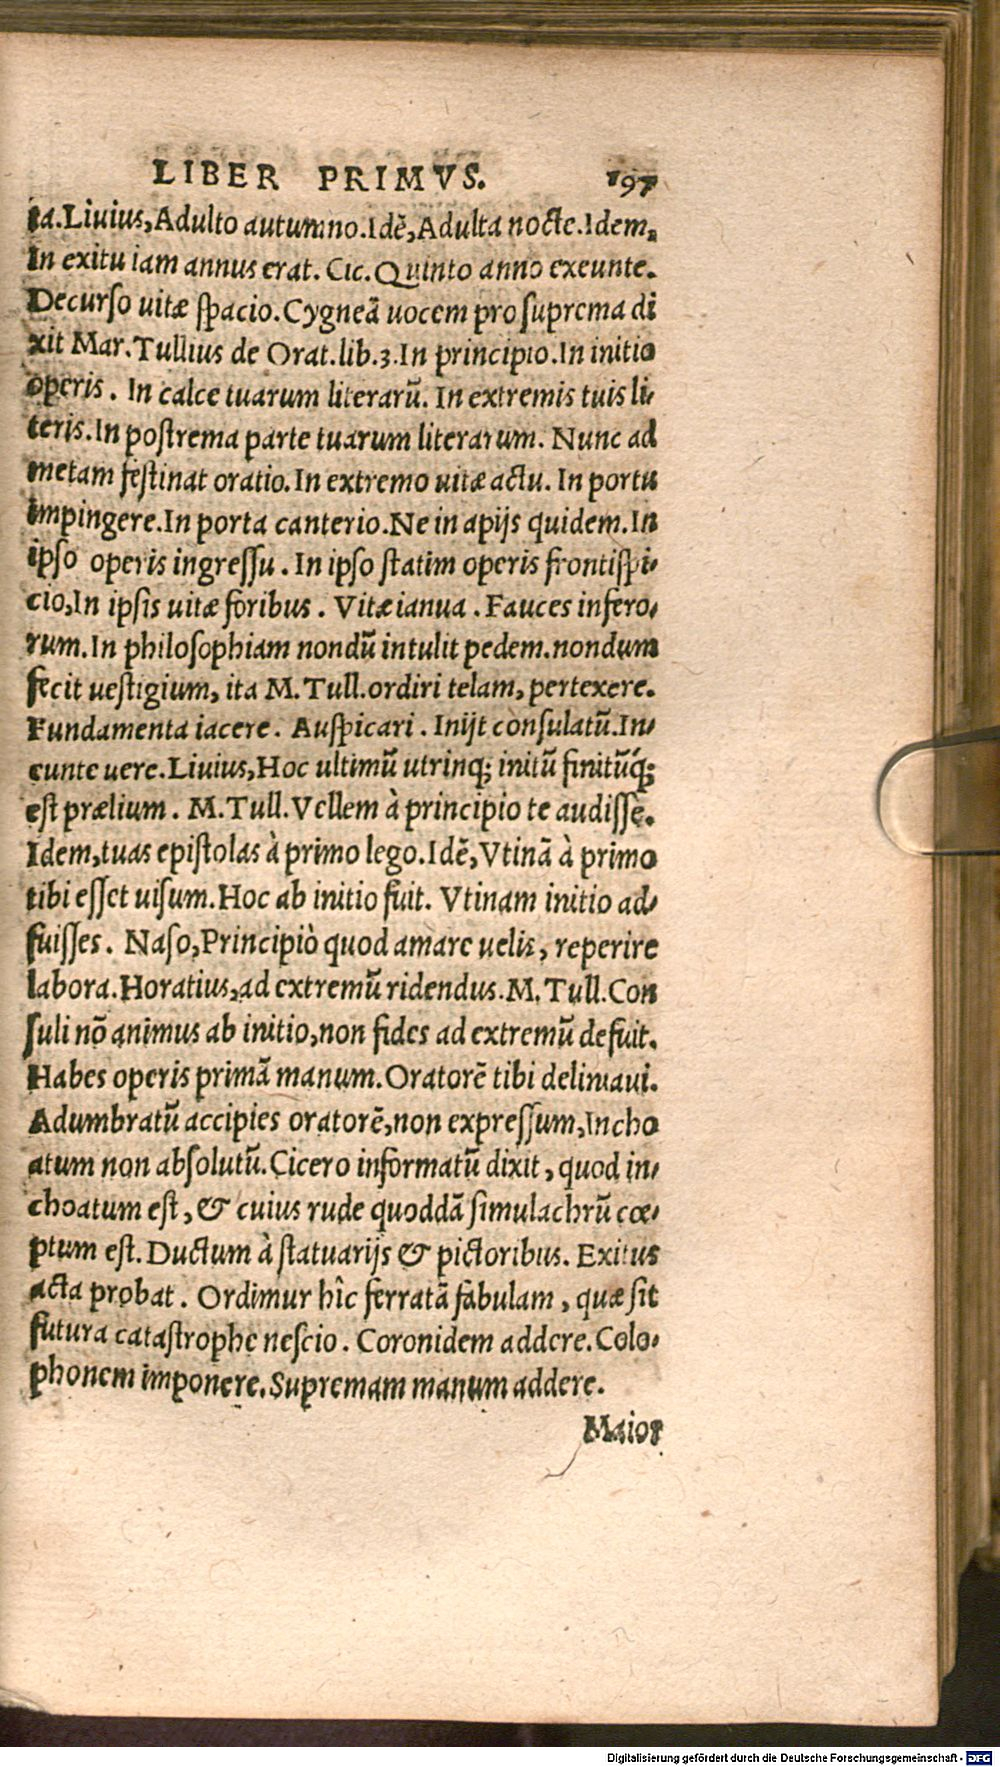 LIBER PRIMVS. 197
ta. Liuius, Adulto autumno. Idē, Adulta nocte. Idem,
In exitu iam annus erat. Cic. Quinto anno exeunte.
Decurso uitæ spacio. Cygneā uocem pro suprema di
xit Mar. Tullius de Orat. lib. 3. In principio. In initio
operis. In calce tuarum literarū. In extremis tuis li-
teris. In postrema parte tuarum literarum. Nunc ad
metam festinat oratio. In extremo uitæ actu. In portu
impingere. In porta canterio. Ne in apijs quidem. In
ipso operis ingressu. In ipso statim operis frontispi-
cio, In ipsis uitæ foribus. Vitæ ianua. Fauces infero-
rum. In philosophiam nondū intulit pedem. nondum
fecit uestigium, ita M. Tull. ordiri telam, pertexere.
Fundamenta iacere. Auspicari. Inijt consulatū. In-
eunte uere. Liuius, Hoc ultimū utrinq; initū finitū́q;
est prælium. M. Tull. Vellem à principio te audisse.
Idem, tuas epistolas à primo lego. Idē, Vtinā à primo
tibi esset uisum. Hoc ab initio fuit. Vtinam initio ad-
fuisses. Naso, Principiò quod amare uelis, reperire
labora. Horatius, ad extremū ridendus. M. Tull. Con
suli nō animus ab initio, non fides ad extremū defuit.
Habes operis primā manum. Oratorē tibi deliniaui.
Adumbratū accipies oratorē, non expressum, Incho
atum non absolutū. Cicero informatū dixit, quod in-
choatum est, & cuius rude quoddā simulachrū cœ-
ptum est. Ductum à statuarijs & pictoribus. Exitus
acta probat. Ordimur hîc ferratā fabulam, quæ sit
futura catastrophe nescio. Coronidem addere. Colo-
phonem imponere. Supremam manum addere.
Maior
Digitalisierung gefördert durch die Deutsche Forschungsgemeinschaft - DFG